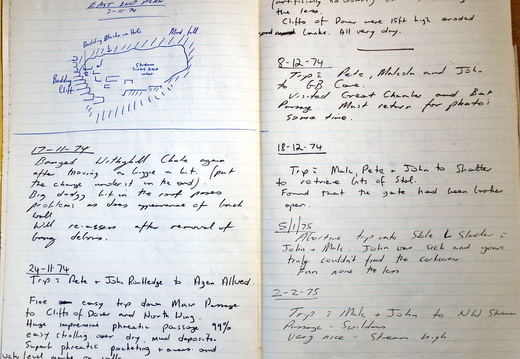 EAST END PLAN
2-11-74
Bedding Block in Hole
Mud fill
Bedding
Cliffs
Stream
17-11-74
Banged Withyhill Choke again
after moving a bigge a bit, (put
the charge under it in the end)
Big dodgy bit in the roof poses
problems as does appearance of back
wall
Will re-assess after removal of
bang debris.
24-11-74
Trip = Pete + John Rutledge to Agen Allwed.
Fine easy trip down Main Passage
to Cliffs of Dover and North Wing.
Huge impressive phreatic passage 99%
easy strolling over dry, mud deposits.
Superb phreatic pocketing + aven and
water level marks on walls
the less.
Cliffs of Dover were 15ft high eroded
banks. All very dry.
8-12-74
Trip = Pete, Malcolm and John
to GB Cave.
Visited Great Chamber and Bat
Passage. Must return for photo's
some time.
18-12-74
Trip = Malc, Pete + John to Shatter
to retrieve bits of Stal.
Found that the gate had been broken
open.
5/1/75
Abortive trip into
John + Malc. John was sick and
truly couldn't find the corkscrew
Fun none the less
2-2-75
Trip = Malc + John to NW Stream
Passage - Swildons
Very nice - Stream high